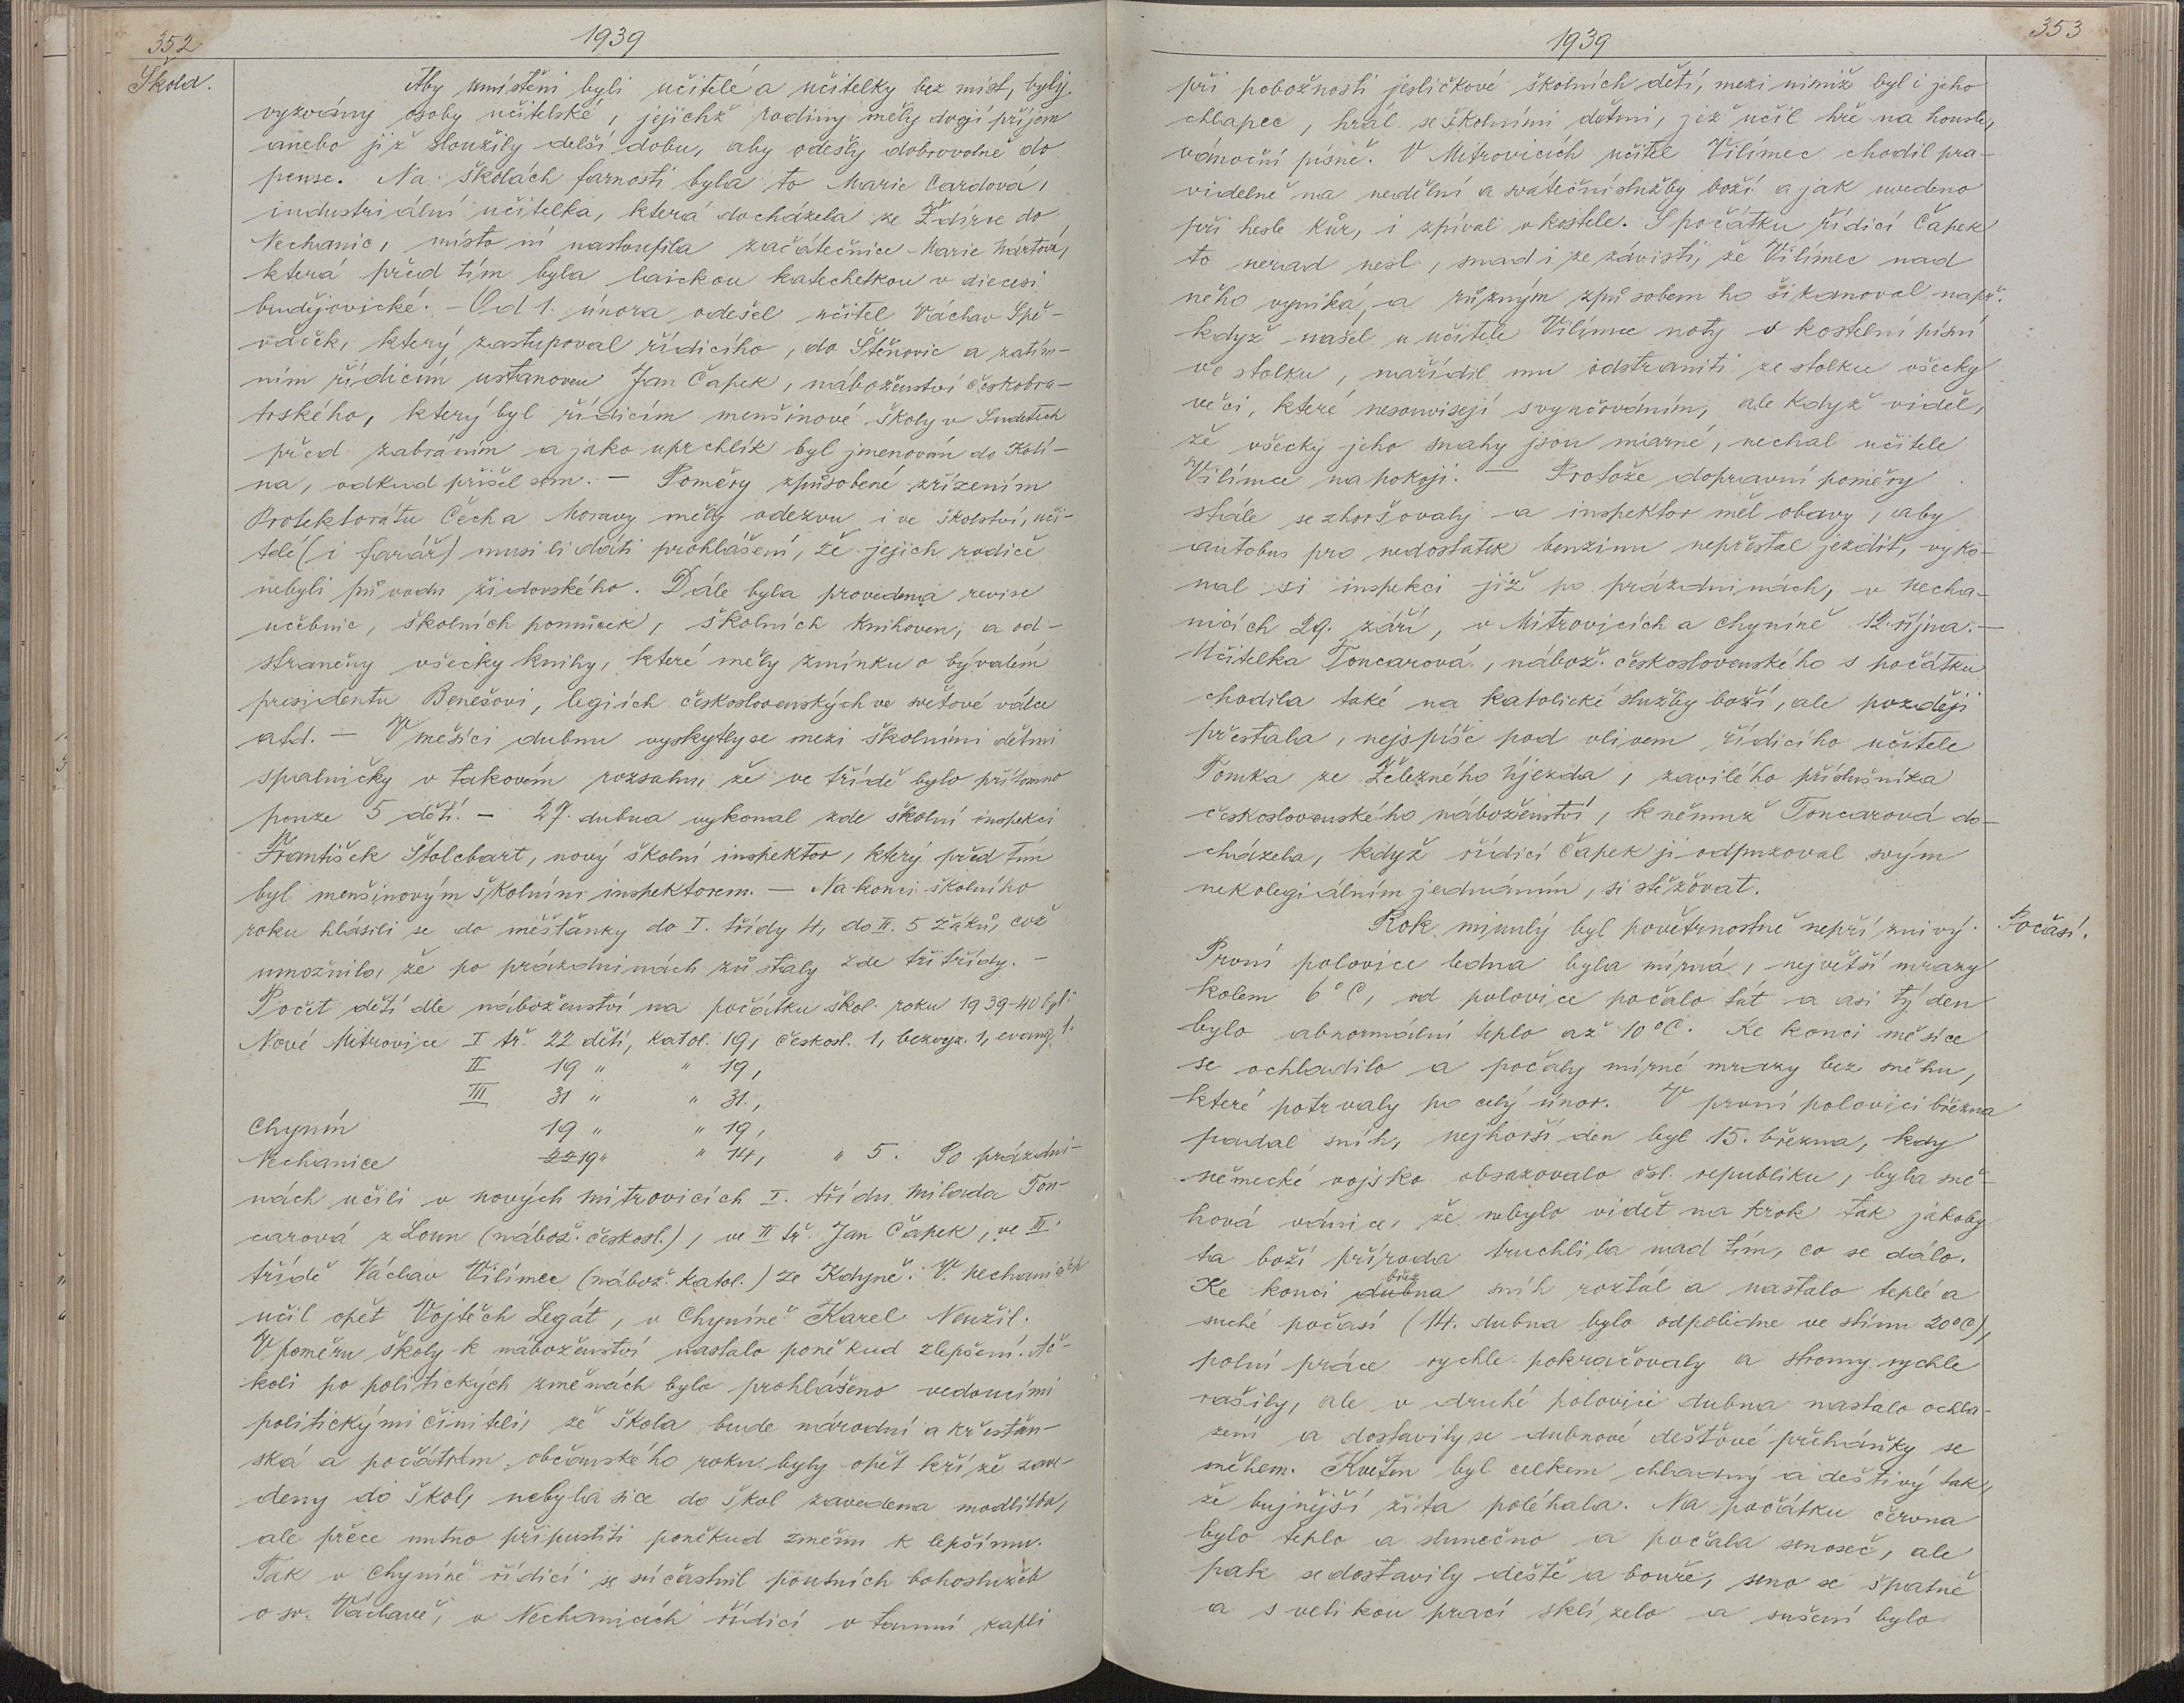 352
1939
Škola.
Aby umístěni byli učitelé a učitelky bez míst, byly
vyzvány osoby učitelské, jejichž rodiny měly dvojí příjem
anebo již sloužily delší dobu, aby odešly dobrovolně do
pense. Na školách farnosti byla to Marie Cardová,
industriální učitelka, která docházela ze Ždírce do
Nechanic, místo ní nastoupila začátečnice Marie Mártová,
která před tím byla laickou katechetkou v diecesi
budějovické. - Od 1. února odešel učitel Václav Spě-
váček, který zastupoval řídicího, do Štěnovic a zatím-
ním řídicím ustanoven Jan Čapek, náboženství českobra-
trského, který byl řídicím menšinové školy v Sudetech
před zabráním a jako uprchlík byl jmenován do Kolí-
na, odkud přišel sem. - Poměry způsobené zřízením
Protektorátu Čech a Moravy měly odezvu i ve školství, uči-
telé (i farář) musili dáti prohlášení, že jejich rodiče
nebyli původu židovského. Dále byla provedena revise
učebnic, školních pomůcek, školních knihoven, a od-
straněny všecky knihy, které měly zmínku o bývalém
presidentu Benešovi, legiích československých ve světové válce
atd. - V měsíci dubnu vyskytly se mezi školními dětmi
spalničky v takovém rozsahu, že ve třídě bylo přítomno
pouze 5 dětí. - 27. dubna vykonal zde školní inspekci
František Štolcbart, nový školní inspektor, který před tím
byl menšinovým školním inspektorem. - Na konci školního
roku hlásili se do měšťanky do I. třídy 4, do II. 5 žáků, což
umožnilo, že po prázdninách zůstaly zde tři třídy. -
Počet dětí dle náboženství na počátku škol. roku 1939-40 byl:
Nové Mitrovice I tř. 22 dětí, katol. 19, českosl. 1, bezvyz. 1, evang. 1.
II 19 " " 19,
III 31 " " 31.,
Chynín 19 " " 19,
Nechanice 22 19 " " 14, " 5. Po prázdni-
nách učili v nových Mitrovicích I. třídu Milada Ton-
carová z Loun (nábož. českosl.), ve II tř. Jan Čapek, ve III.
třídě Václav Vilímec (nábož. katol.) ze Kdyně. V Nechanicích
učil opět Vojtěch Legát, v Chyníně Karel Neužil.
V poměru školy k náboženství nastalo poněkud zlepšení. Ač-
koli po politických změnách bylo prohlášeno vedoucími
politickými činiteli, že škola bude národní a křesťan-
ská a počátkem občanského roku byly opět kříže zave-
deny do škol, nebyla sice do škol zavedena modlitba,
ale přece nutno připustiti poněkud změnu k lepšímu.
Tak v Chyníně řídicí se súčastnil poutních bohoslužeb
o sv. Václavě, v Nechanicích řídicí v tamní kapli
353
1939
při pobožnosti jesličkové školních dětí, mezi nimiž byl i jeho
chlapec, hrál se školními dětmi, jež učil hře na housle,
vánoční písně. V Mitrovicích učitel Vilímec chodil pra-
videlně na nedělní a sváteční služby boží a jak uvedeno
při hesle kůr, i zpíval v kostele. S počátku řídicí Čapek
to nerad nesl, snad i ze závisti, že Vilímec nad
něho vyniká, a různým způsobem ho šikanoval např.
když našel u učitele Vilímce noty v kostelní písni
ve stolku, nařídil mu odstraniti ze stolku všecky
věci, které nesouvisejí s vyučováním, ale když viděl,
že všecky jeho snahy jsou marné, nechal učitele
Vilímce na pokoji. - Protože dopravní poměry
stále se zhoršovaly a inspektor měl obavy, aby
autobus pro nedostatek benzinu nepřestal jezdit, vyko-
nal si inspekci již po prázdninách, v Necha-
nicích 29. září, v Mitrovicích a Chyníně 12. října. -
Učitelka Toncarová, nábož. československého s počátku
chodila také na katolické služby boží, ale později
přestala, nejspíše pod vlivem řídicího učitele
Tomka ze Železného Újezda, zavilého příslušníka
československého náboženství, k němuž Toncarová do-
cházela, když řídicí Čapek ji odpuzoval svým
nekolegiálním jednáním, si stěžovat.
Počasí.
Rok minulý byl povětrnostně nepříznivý.
První polovice ledna byla mírná, největší mrazy
kolem 6° C, od polovice počalo tát a asi týden
bylo abnormální teplo až 10°C. Ke konci měsíce
se ochladilo a počaly mírné mrazy bez sněhu,
které potrvaly po celý únor. V první polovici března
padal sníh, nejhorší den byl 15. března, kdy
německé vojsko obsazovalo čsl. republiku, byla sně-
hová vánice, že nebylo vidět na krok tak jakoby
ta boží příroda truchlila nad tím, co se dálo.
břez
Ke konci dubna sníh roztál a nastalo teplé a
suché počasí (14. dubna bylo odpoledne ve stínu 20°C),
polní práce rychle pokračovaly a stromy rychle
rašily, ale v druhé polovici dubna nastalo ochla-
zení a dostavily se dubnové dešťové přeháňky se
sněhem. Květen byl celkem chladný a deštivý tak,
že bujnější žita poléhala. Na počátku června
bylo teplo a slunečno a počala senoseč, ale
pak se dostavily deště a bouře, seno se špatně
a s velikou prací sklízelo a sušení bylo